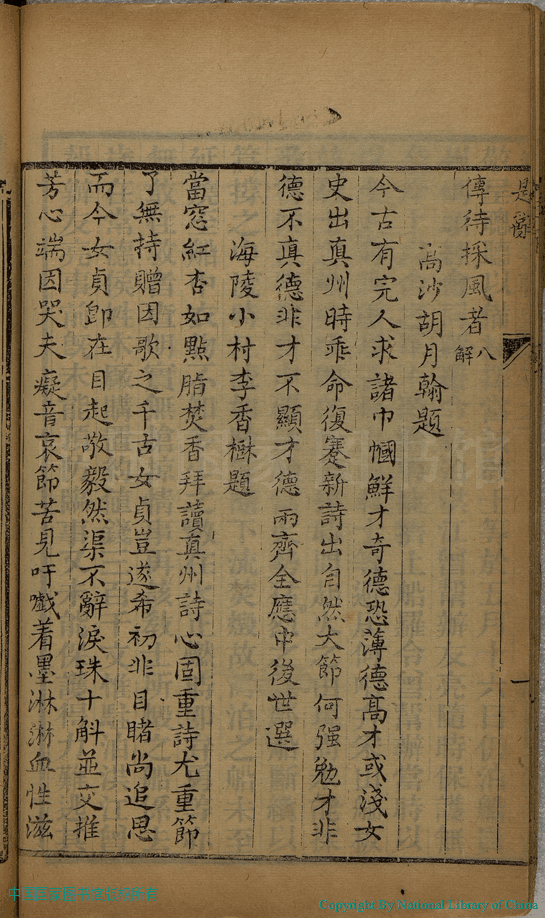 題辭
傳待採風者 八解
高沙胡月翰題
今古有完人求諸巾幗鮮才奇德恐薄德高才或淺女
史出真州時乖命復蹇新詩出自然大節何强勉才非
德不真德非才不顯才德兩齊全應中後世選
海陵小村李香橄題
當窓紅杏如點脂焚香拜讀真州詩心固重詩尤重節
了無持贈因歌之千古女貞豈遂希初非目睹尚追思
而今女貞即在目起敬毅然渠不辭淚珠十斛並交推
芳心端因哭夫癡音哀節苦見吁戲着墨淋淋血性滋
一
中國國家图书馆版权所有
Copyright By National Library of China